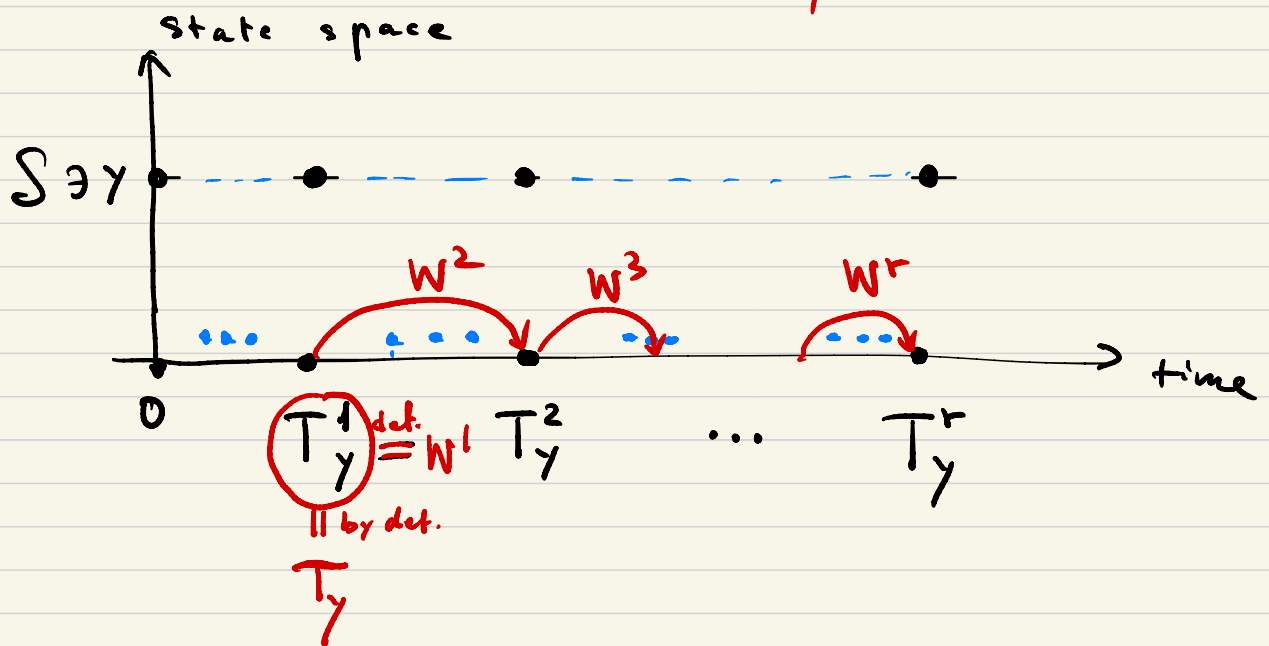 state space
S ∋ y
W² W³ Wʳ
time
0 T_y^1 def. = W¹ T_y^2 ... T_y^r
|| by def.
T_y